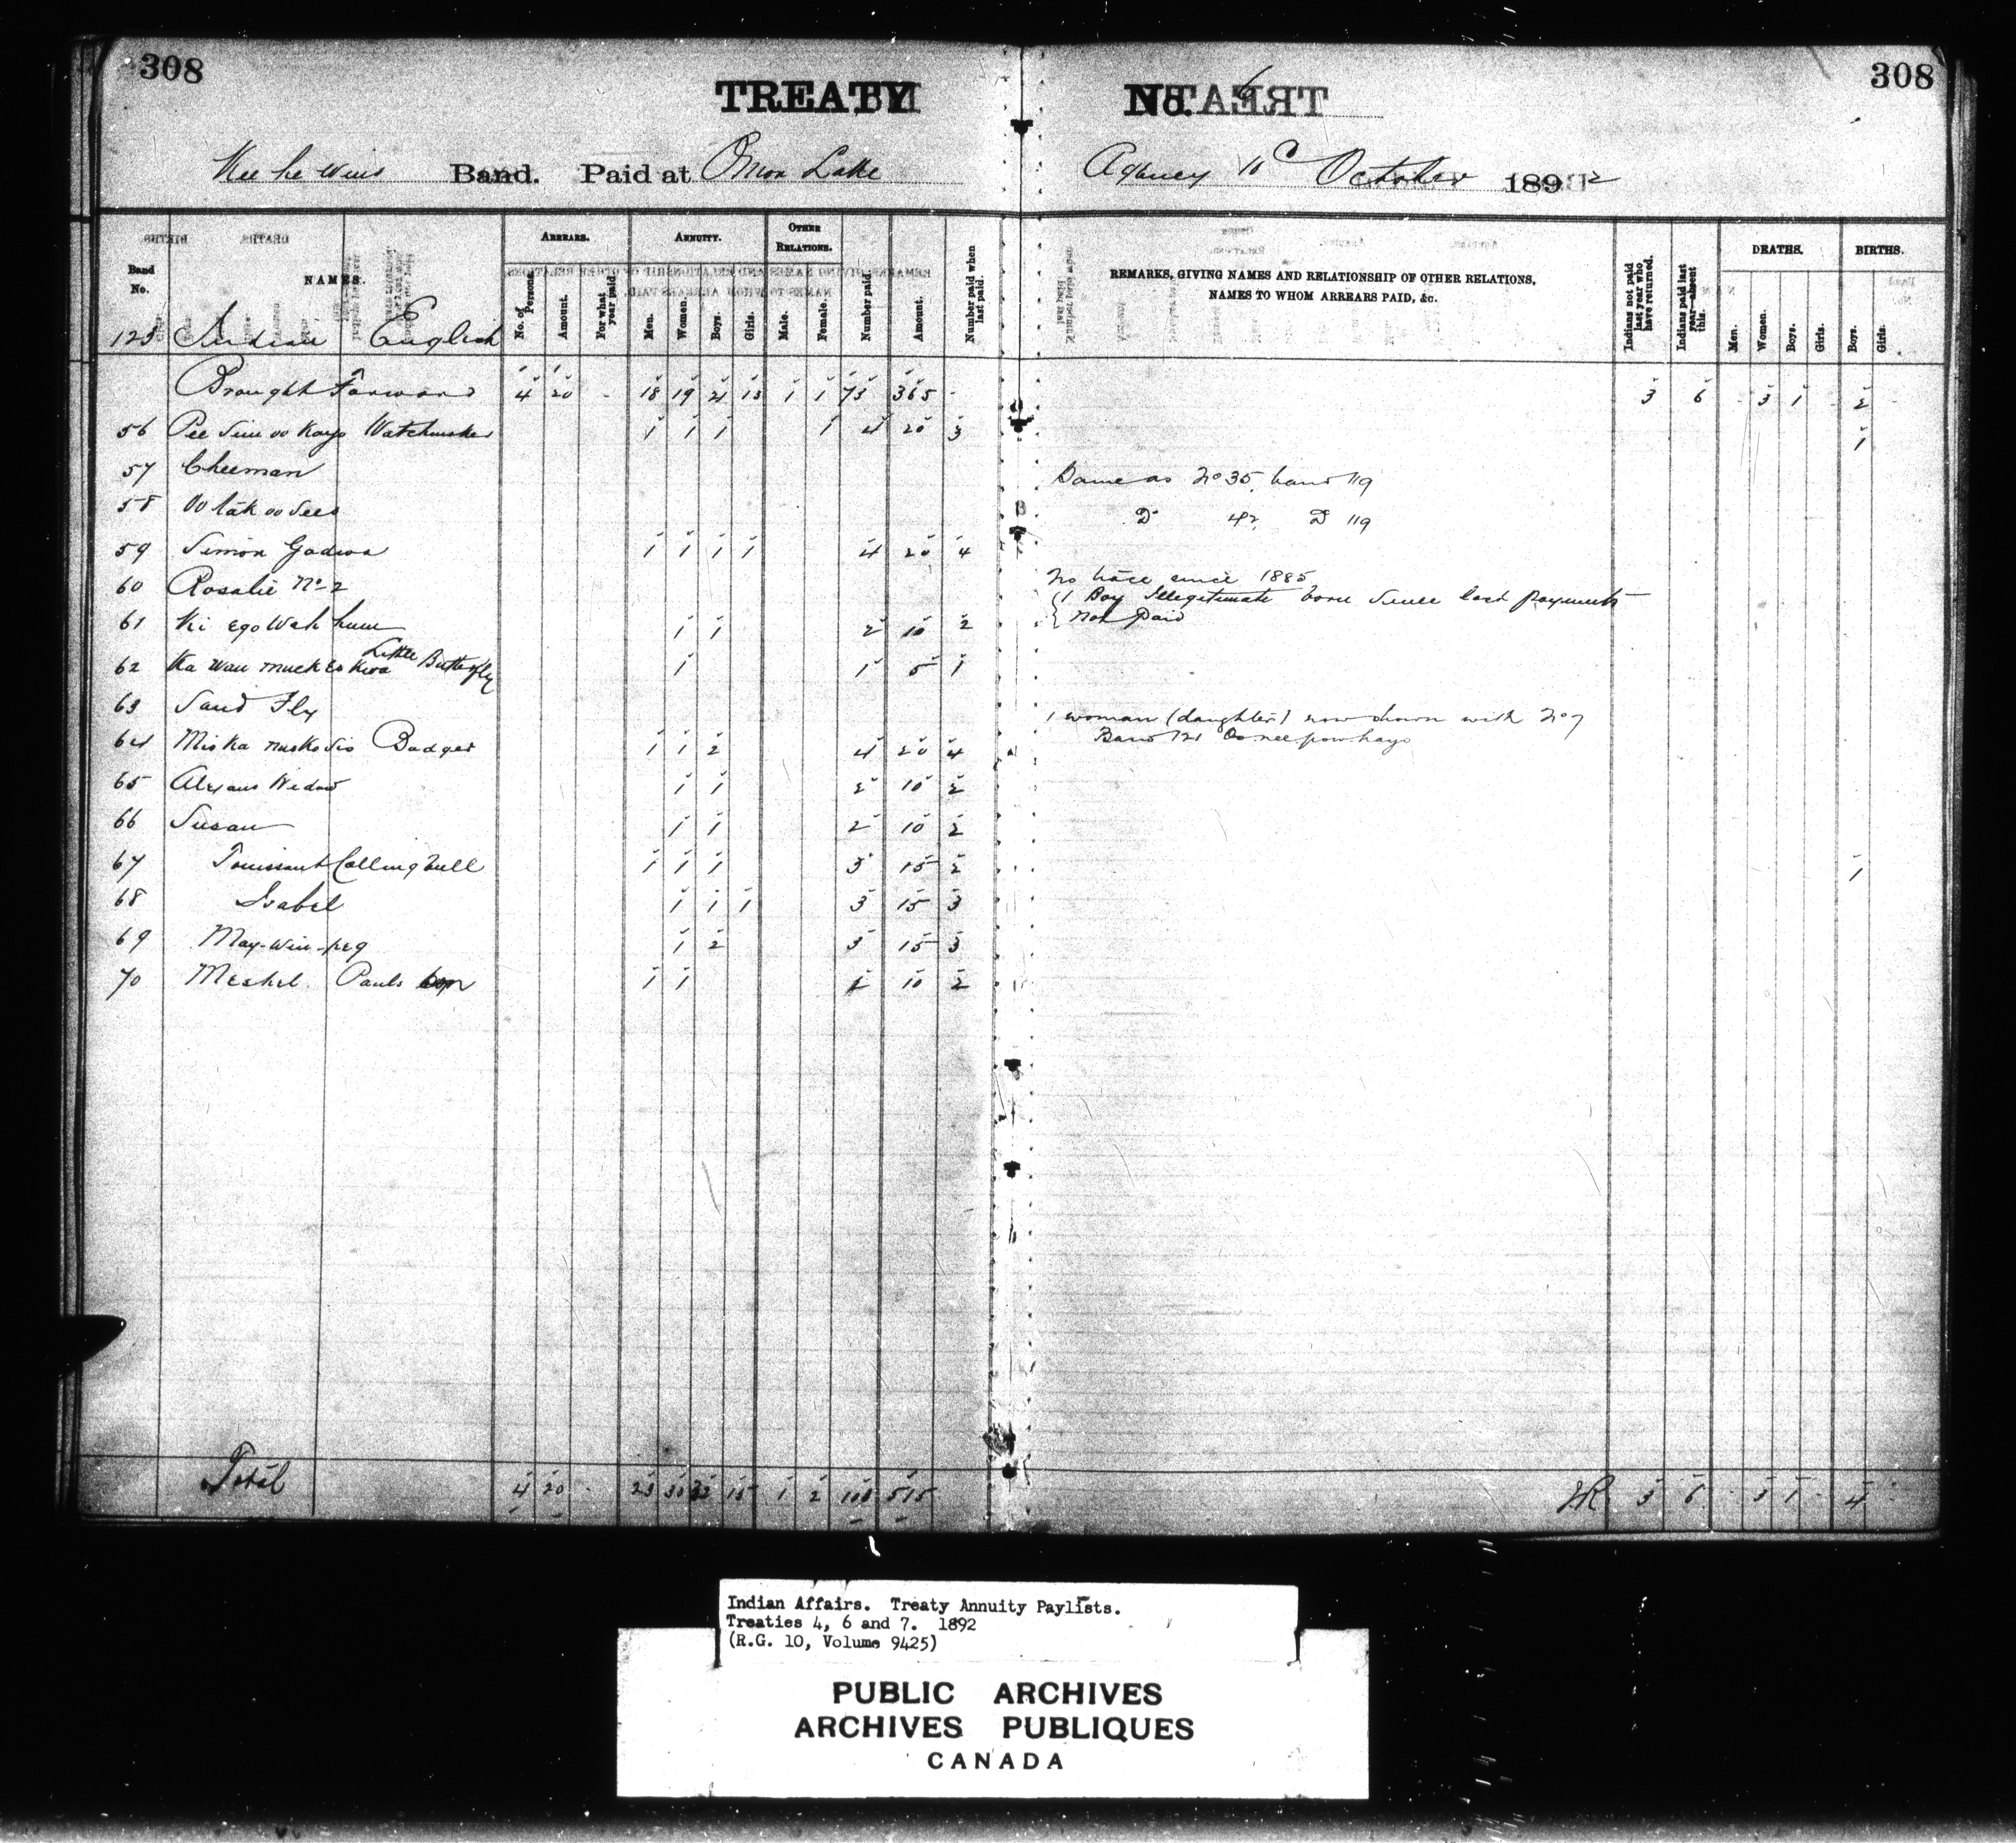 308
308
TREATY No. 6
Kee he wins Band. Paid at Onion Lake Agency 11th October 1892
Band No.
NAMES.
ARREARS.
No. of Persons.
Amount.
For what year paid.
ANNUITY.
Men.
Women.
Boys.
Girls.
OTHER RELATIONS.
Male.
Female.
Number paid.
Amount.
Number paid when last paid.
REMARKS, GIVING NAMES AND RELATIONSHIP OF OTHER RELATIONS,
NAMES TO WHOM ARREARS PAID, &c.
Indians not paid last year who have returned.
Indians paid last year—absent this.
DEATHS.
Men.
Women.
Boys.
Girls.
BIRTHS.
Boys.
Girls.
123 Indian English
Brought Forward 4 20 - 18 19 21 13 1 1 73 365 - 3 6 - 3 1 - 2
56 Pee Sim oo Kayo Watchmaker 1 1 1 1 4 20 3 1
57 Cheeman Same as No 35, band 119
58 Oo tak oo sees Do 42, Do 119
59 Simon Gadwa 1 1 1 1 4 20 4
60 Rosalie No 2 No trace since 1885
61 Ki ego wah hum 1 1 2 10 2 1 Boy Illegitimate born since last payments
Not Paid
62 Ka wau muck es kwa Little Butterfly 1 1 5 1
63 Sand Fly 1 woman (daughter) now shown with No 7
Band 121
64 Mis ka nusko sis Badger 1 1 2 4 20 4
65 Alexans Widow 1 1 2 10 2
66 Susan 1 1 2 10 2
67 Touissant Callingbull 1 1 1 3 15 2 1
68 Isabel 1 1 1 3 15 3
69 May-win-peg 1 2 3 15 3
70 Meshel Pauls son 1 1 2 10 2
Total 4 20 - 23 30 32 15 1 2 103 515 3 6 - 3 1 - 4
Indian Affairs. Treaty Annuity Paylists.
Treaties 4, 6 and 7. 1892
(R.G. 10, Volume 9425)
PUBLIC ARCHIVES
ARCHIVES PUBLIQUES
CANADA